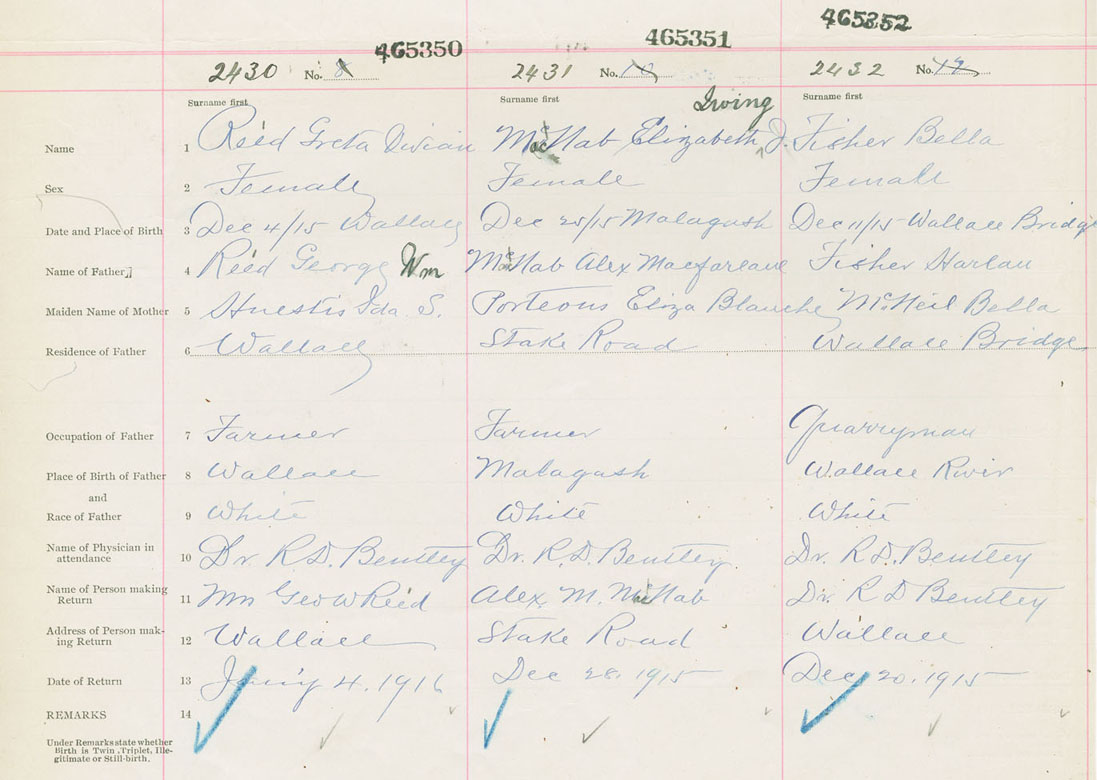 465350 465351 465352
2430 No. 8 2431 No. 2432 No.
Surname first Surname first Irving Surname first
Name 1 Reid Greta Vivian MacNab Elizabeth J. Fisher Bella
Sex 2 Female Female Female
Date and Place of Birth 3 Dec 4/15 Wallace Dec 25/15 Malagash Dec 11/15 Wallace Bridge
Name of Father 4 Reid George Wm MacNab Alex Macfarlane Fisher Harlan
Maiden Name of Mother 5 Huestis Ida S. Porteous Eliza Blanche McNeil Bella
Residence of Father 6 Wallace Stake Road Wallace Bridge
Occupation of Father 7 Farmer Farmer Quarryman
Place of Birth of Father 8 Wallace Malagash Wallace River
and
Race of Father 9 White White White
Name of Physician in
attendance 10 Dr. R.D. Bentley Dr. R.D. Bentley Dr. R.D. Bentley
Name of Person making
Return 11 Mrs Geo W Reid Alex. M. MacNab Dr. R D Bentley
Address of Person mak-
ing Return 12 Wallace Stake Road Wallace
Date of Return 13 4. 1916 Dec 28. 1915 Dec 20. 1915
REMARKS 14
Under Remarks state whether
Birth is Twin, Triplet, Ille-
gitimate or Still-birth.